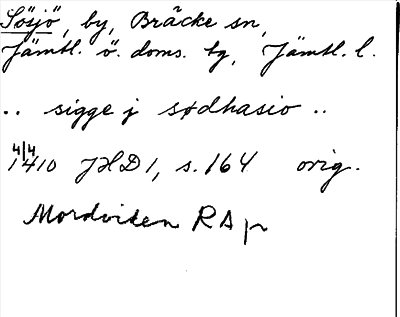 Sösjö, by, Bräcke sn,
Jämtl. ö. doms. tg, Jämtl. l.
.. sigge j sødhasio ..
4/4
1410 JHD 1, s. 164 orig.
Mordviken RA p